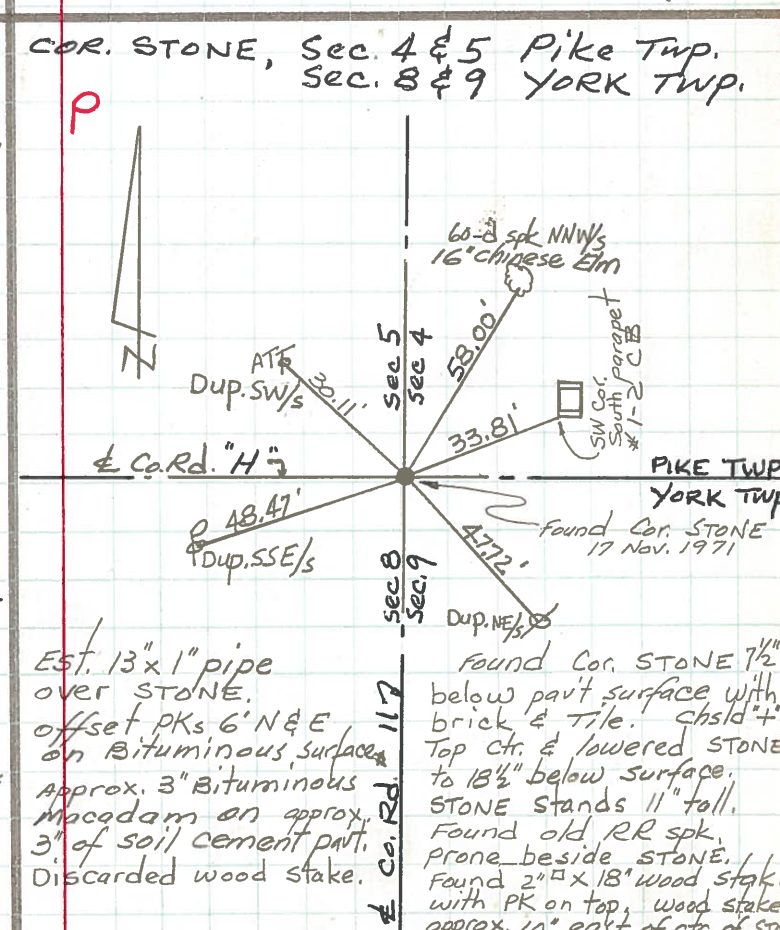 COR. STONE, Sec. 4 & 5 Pike Twp.
Sec. 8 & 9 YORK TWP.
P
N
60-d spk NNW/s
16" Chinese Elm
58.00'
Sec 5
Sec 4
ATT
Dup. SW/s
30.11'
SW Cor.
South Parapet
#1-2 CB
33.81'
℄ Co. Rd. "H"
PIKE TWP
YORK TWP
48.47'
Dup. SSE/s
Found Cor. STONE
17 Nov. 1971
47.72'
Sec 8
Sec. 9
Dup. NE/s
℄ Co. Rd. 117
Est. 13" x 1" pipe
over STONE.
offset PKs 6' N & E
on Bituminous surface.
Approx. 3" Bituminous
macadam on approx.
3" of soil cement pav't.
Discarded wood stake.
Found Cor. STONE 7½"
below pav't surface with
brick & Tile. Chsld "+"
Top ctr. & lowered STONE
to 18½" below surface.
STONE Stands 11" tall.
Found old RR spk.
prone beside STONE.
Found 2"□ x 18" wood stak
with PK on top. wood stake
approx. 10" east of ctr of ST